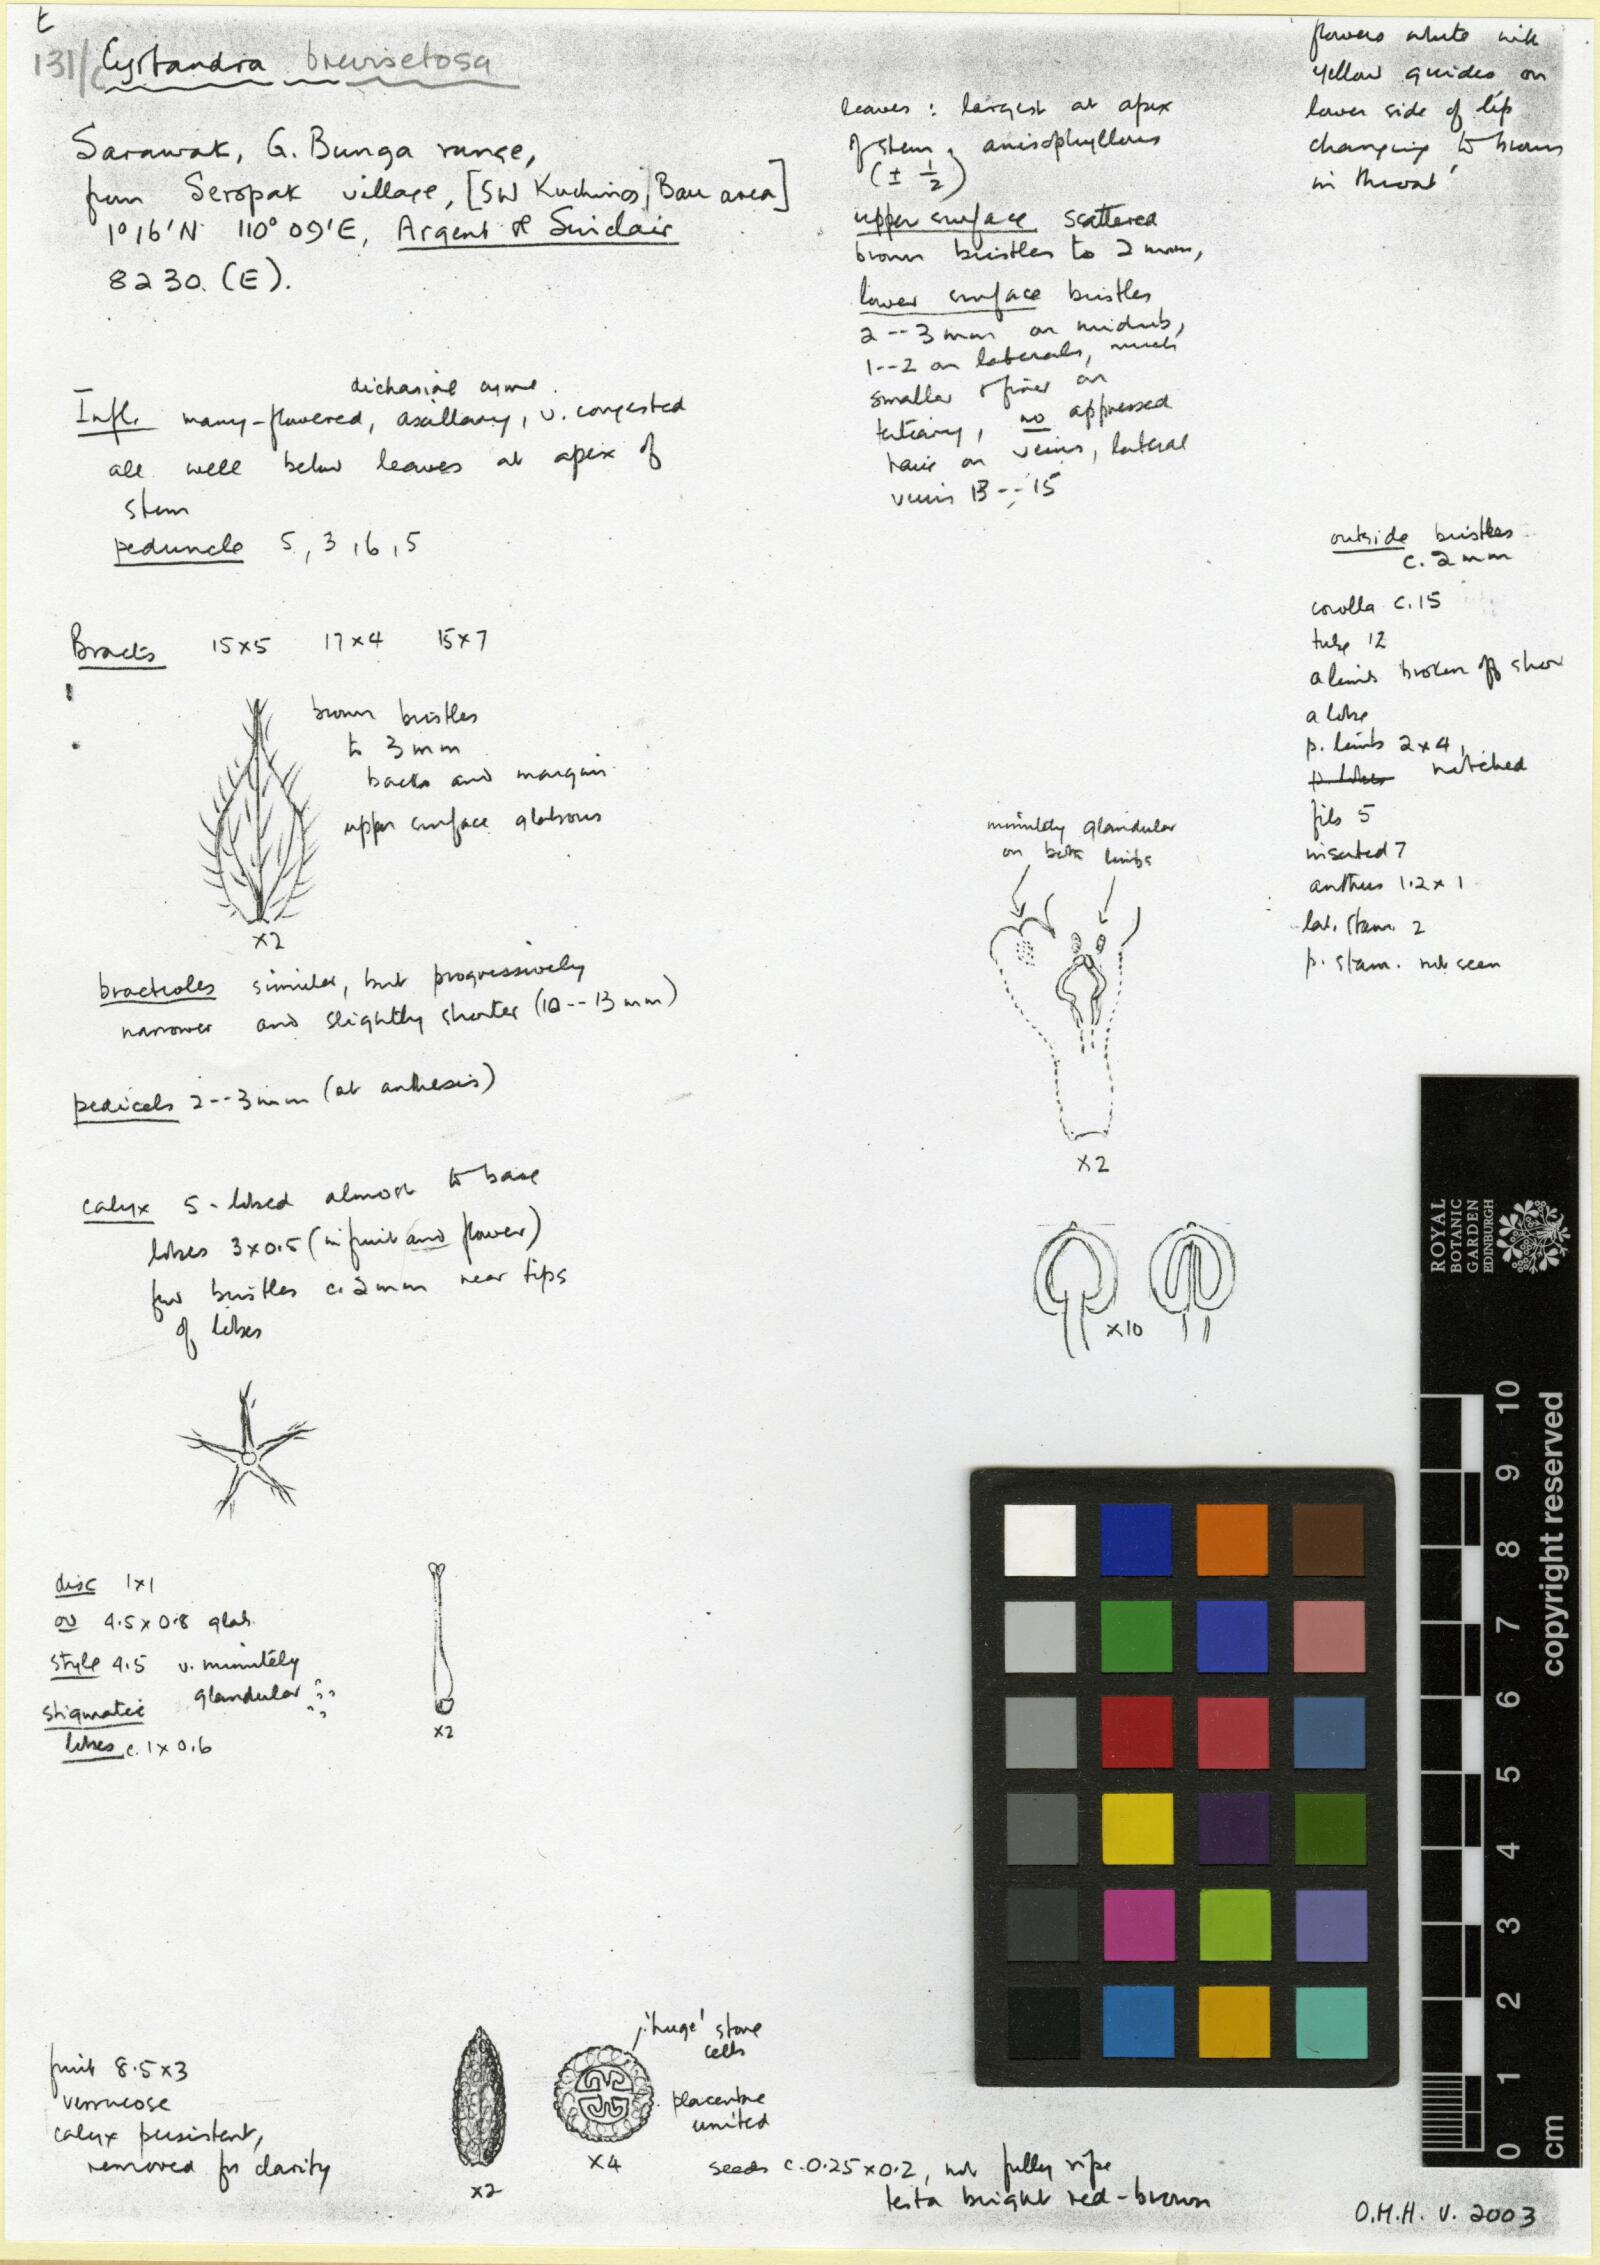 t
131/c Cyrtandra brevisetosa
Sarawak, G. Bunga range,
from Seropak village, [SW Kuching/Bau area]
1°16'N 110°09'E, Argent & Sinclair
8230. (E).
Infl. many-flowered, axillary, v. congested
dichasial cyme.
all well below leaves at apex of
stem
peduncle 5, 3, 6, 5
Bracts 15x5 17x4 15x7
brown bristles
to 3mm
backs and margin
upper surface glabrous
x2
bracteoles similar, but progressively
narrower and slightly shorter (10--13mm)
pedicels 2--3mm (at anthesis)
calyx 5-lobed almost to base
lobes 3x0.5 (in fruit and flower)
few bristles c.2mm near tips
of lobes
disc 1x1
ov 4.5x0.8 glab.
style 4.5 v. minutely
glandular
stigmatic
lobes c.1x0.6
x2
fruit 8.5x3
verrucose
calyx persistent,
removed for clarity
x2
'huge' stone
cells
placentae
united
x4
seeds c.0.25x0.2, not fully ripe
testa bright red-brown
leaves: largest at apex
of stem, anisophyllous
(± 1/2)
upper surface scattered
brown bristles to 2mm,
lower surface bristles
2--3mm on midrib,
1--2 on laterals, much
smaller & finer on
tertiary, no appressed
hairs on veins, lateral
veins 13--15
minutely glandular
on both limbs
x2
x10
flowers white with
yellow guides on
lower side of lip
changing to brown
in throat'
outside bristles
c. 2mm
corolla c.15
tube 12
a limb broken off show
a lobe
p. limb 2x4,
p. lobes notched
fils 5
inserted 7
anthers 1.2x1
lat. stam. 2
p. stam. not seen
O.M.H. v. 2003
ROYAL
BOTANIC
GARDEN
EDINBURGH
copyright reserved
0 1 2 3 4 5 6 7 8 9 10
cm